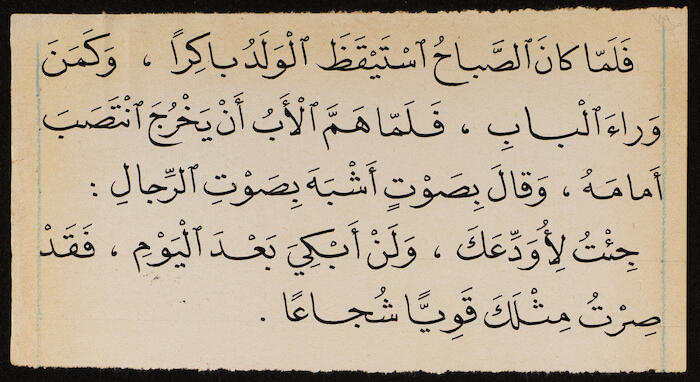 فَلَمّا كانَ ٱلصَّباحُ ٱسْتَيْقَظَ ٱلْوَلَدُ باكِراً ، وَكَمَنَ
وَراءَ ٱلْبابِ ، فَلَمّا هَمَّ ٱلْأَبُ أَنْ يَخْرُجَ ٱنْتَصَبَ
أَمامَهُ ، وَقالَ بِصَوْتٍ أَشْبَهَ بِصَوْتِ ٱلرِّجالِ :
جِئْتُ لِأُوَدِّعَكَ ، وَلَنْ أَبْكِيَ بَعْدَ ٱلْيَوْمِ ، فَقَدْ
صِرْتُ مِثْلَكَ قَوِيًّا شُجاعًا .